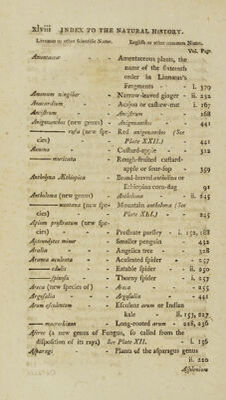 xlviii INDEX TO THE NATURAL HISTORY.
Linnæan or other scientific Name. English or other common Name.
Vol. Page.
Amentaceæ - - Amentaceous plants, the
name of the fifteenth
order in Linnæus's
Fragments - - i. 370
Amomum zingiber - Narrow-leaved ginger - ii. 252
Anacardium - - Acajou or cashew-nut i. 167
Ancistrum - - Ancistrum - 268
Anigozanthos (new genus) - Anigozanthos - 441
—— rufa (new spe- Red anigozanthos (See
cies) Plate XXII.) - 441
Annona - - Custard-apple - 312
—— muricata Rough-fruited custard-
apple or sour-sop - 359
Antholyza Æthiopica Broad-leaved antholiza or
Ethiopian corn-flag 91
Antholoma (new genus) Antholoma - ii. 245
—— montana (new spe- Mountain antholoma (See
cies) Plate XLI.) - 245
Apium prostratum (new spe-
cies) - - Prostrate parsley - i. 152, 188
Aptenodytes minor - Smaller penguin 452
Aralia - - Angelica tree - 328
Aranea aculeata - Aculeated spider - 257
—— edulis - Eatable spider - ii. 250
—— spinosa - Thorny spider - i. 257
Areca (new species of) Areca - 255
Argofolia - - Argofolia - 441
Arum esculentum Esculent arum or Indian
kale ii. 157, 227
—— macrorhizon Long-rooted arum - 228, 236
Aseroe (a new genus of Fungus, so called from the
disposition of its rays) See Plate XII. - i. 136
Asparagi - - Plants of the asparagus genus
ii. 220